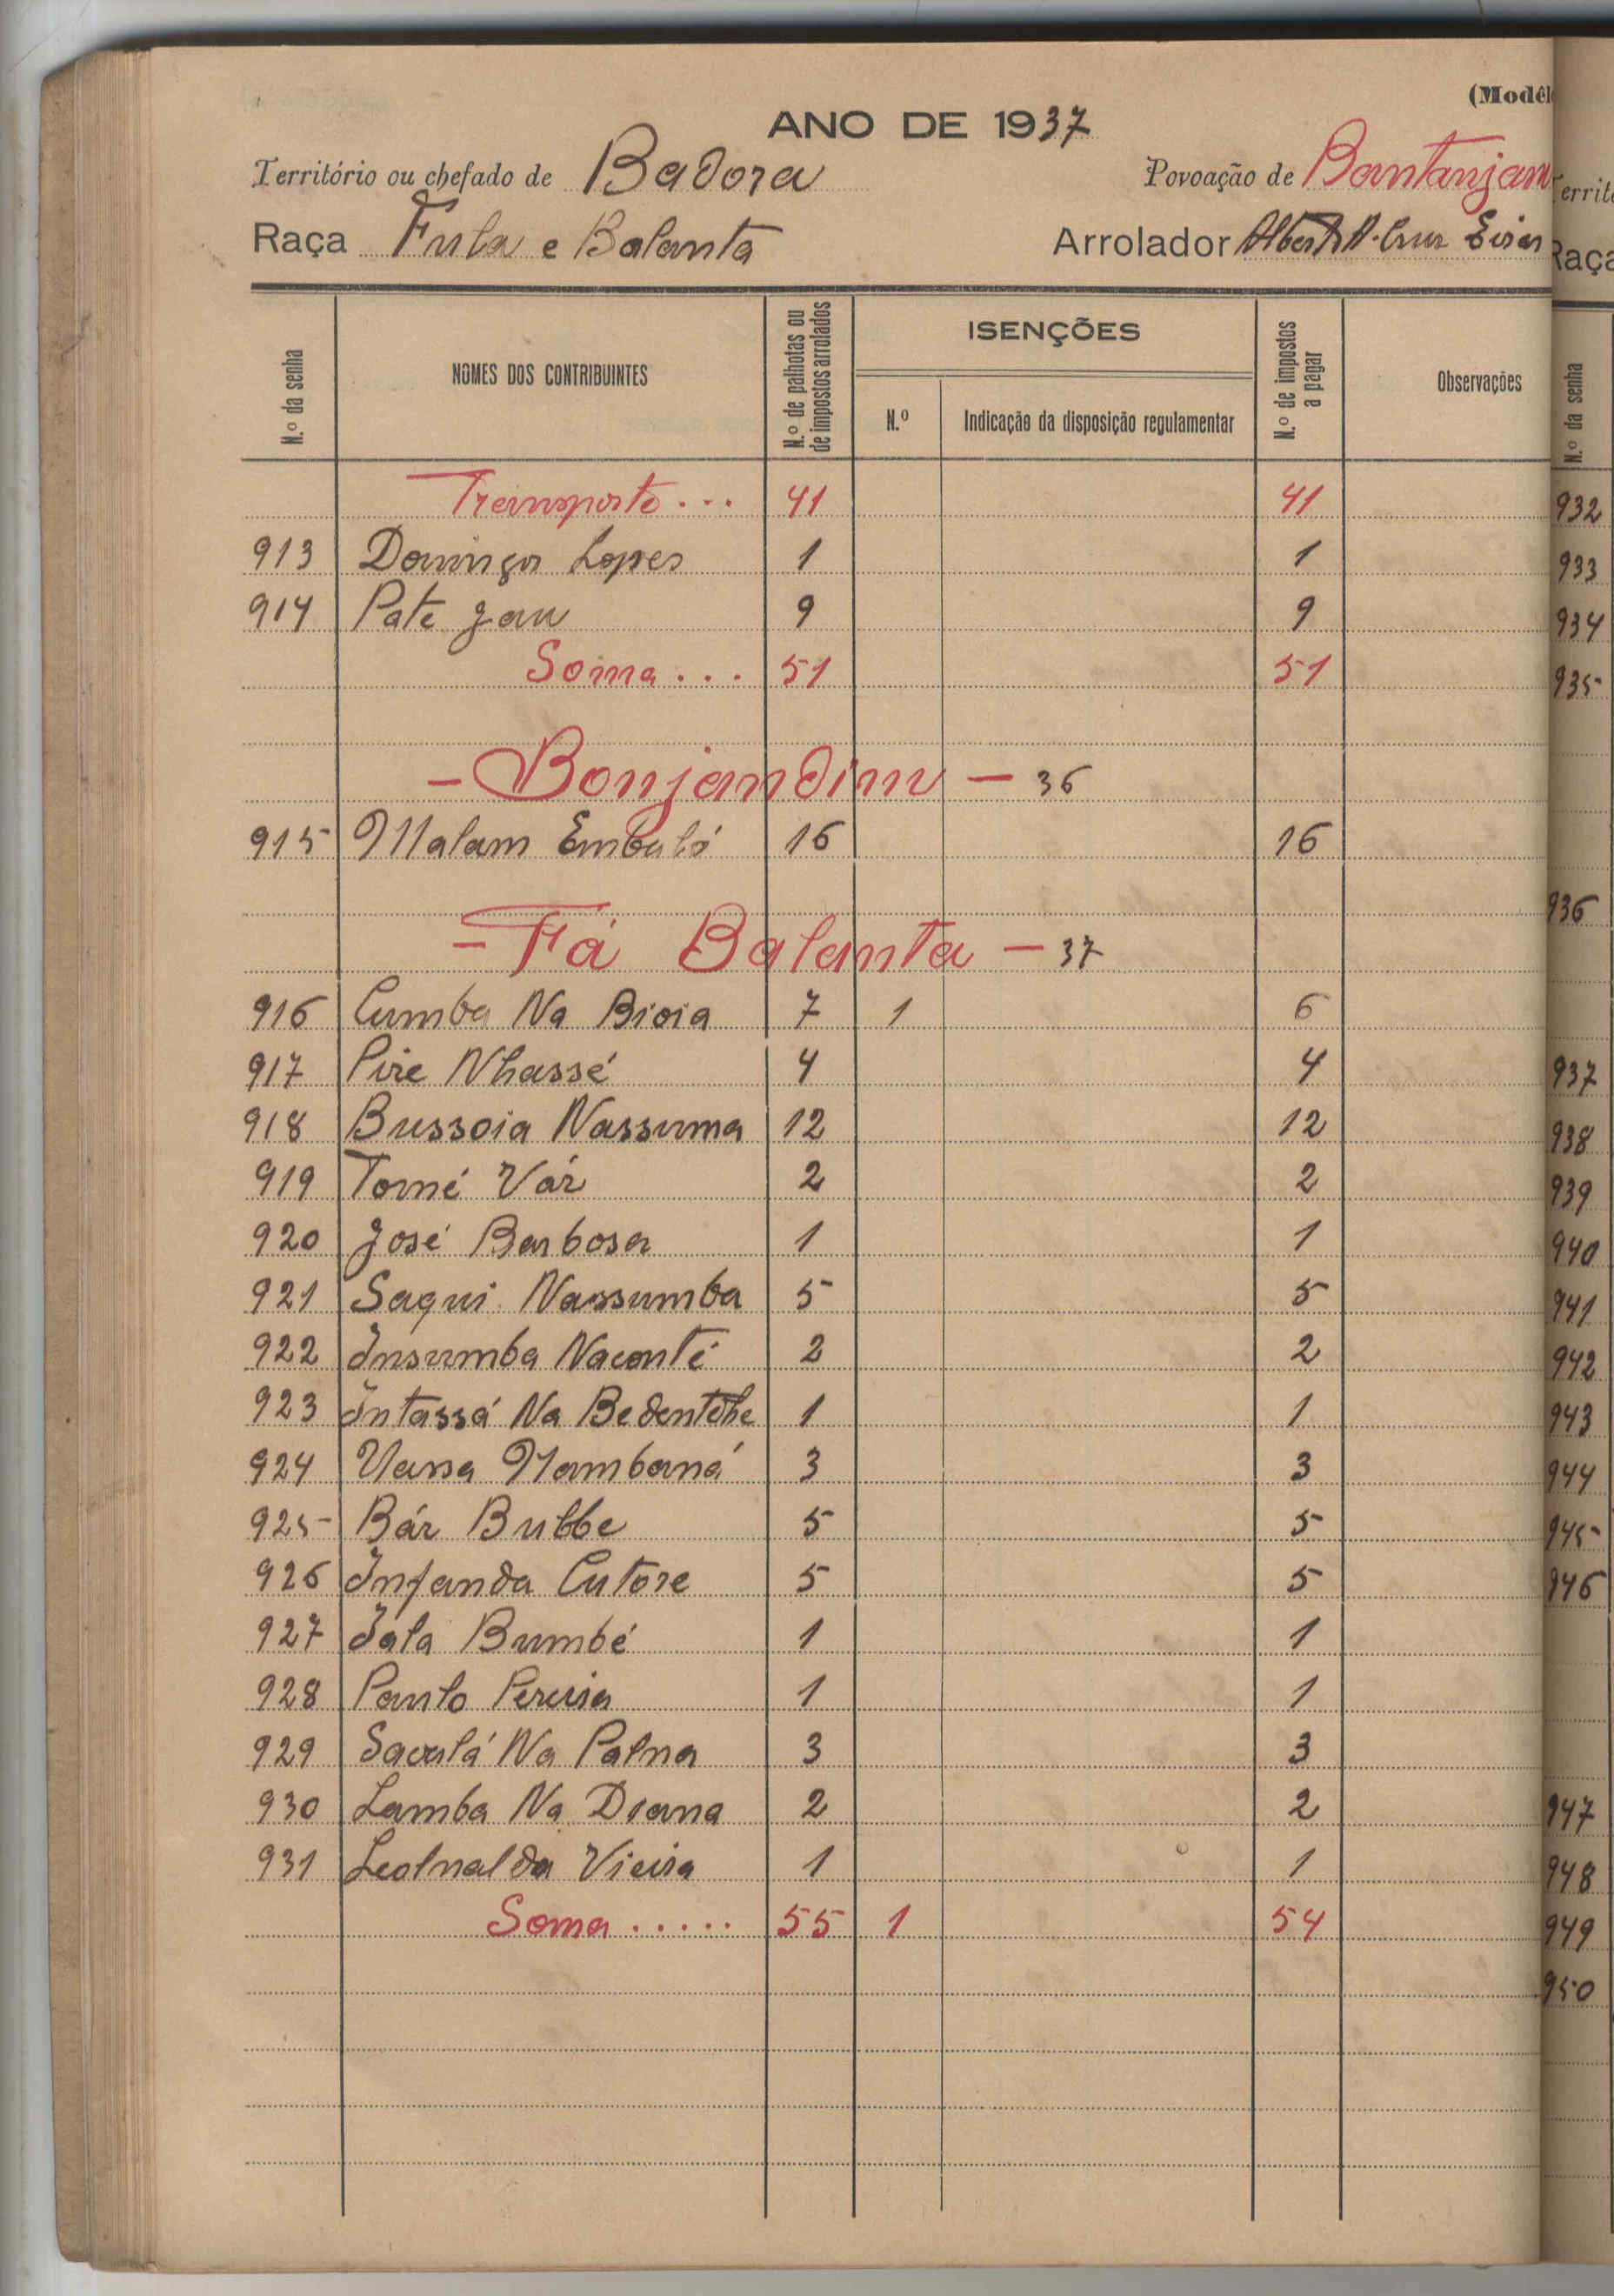 (Modêl
ANO DE 1937
Território ou chefado de Badora Povoação de Bantanjan
Raça Fula e Balanta Arrolador Albert A. Cruz
N.º da senha NOMES DOS CONTRIBUINTES N.º de palhotas ou de impostos arrolados ISENÇÕES N.º Indicação da disposição regulamentar N.º de impostos a pagar Observações
Transporte ... 41 41
913 Domingos Lopes 1 1
914 Pate Jau 9 9
Soma ... 51 51
- Bonjandim - 36
915 Malam Embaló 16 16
- Fá Balanta - 37
916 Cumba Na Bioia 7 1 6
917 Pire Nhassé 4 4
918 Bussoia Nassuma 12 12
919 Tomé Vár 2 2
920 José Barbosa 1 1
921 Saqui Nassumba 5 5
922 Insumba Naconté 2 2
923 Intassá Na Bedentche 1 1
924 Vansa Nambaná 3 3
925 Bár Bubbe 5 5
926 Infanda Cutore 5 5
927 Iala Bumbé 1 1
928 Paulo Pereira 1 1
929 Saculá Na Palna 3 3
930 Lamba Na Diana 2 2
931 Leolnalda Vieira 1 1
Soma ..... 55 1 54
Territó
Raça
N.º da senha
932
933
934
935
936
937
938
939
940
941
942
943
944
945
946
947
948
949
950